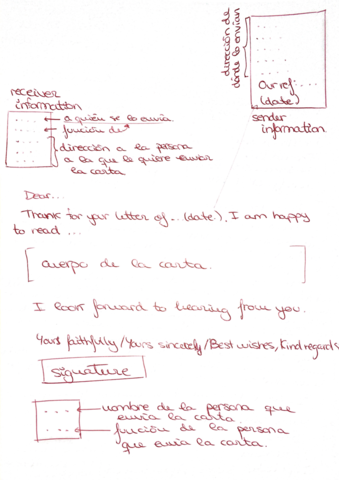 dirección de
dónde lo envían
Our ref: ...
(date)
sender
information
receiver
information
a quién se lo envía
función de
dirección a la persona
a la que le quiere enviar
la carta
Dear...
Thank for your letter of ... (date). I am happy
to read ...
cuerpo de la carta.
I look forward to hearing from you.
Yours faithfully/Yours sincerely/Best wishes, Kind regards
signature
nombre de la persona que
envía la carta
función de la persona
que envía la carta.